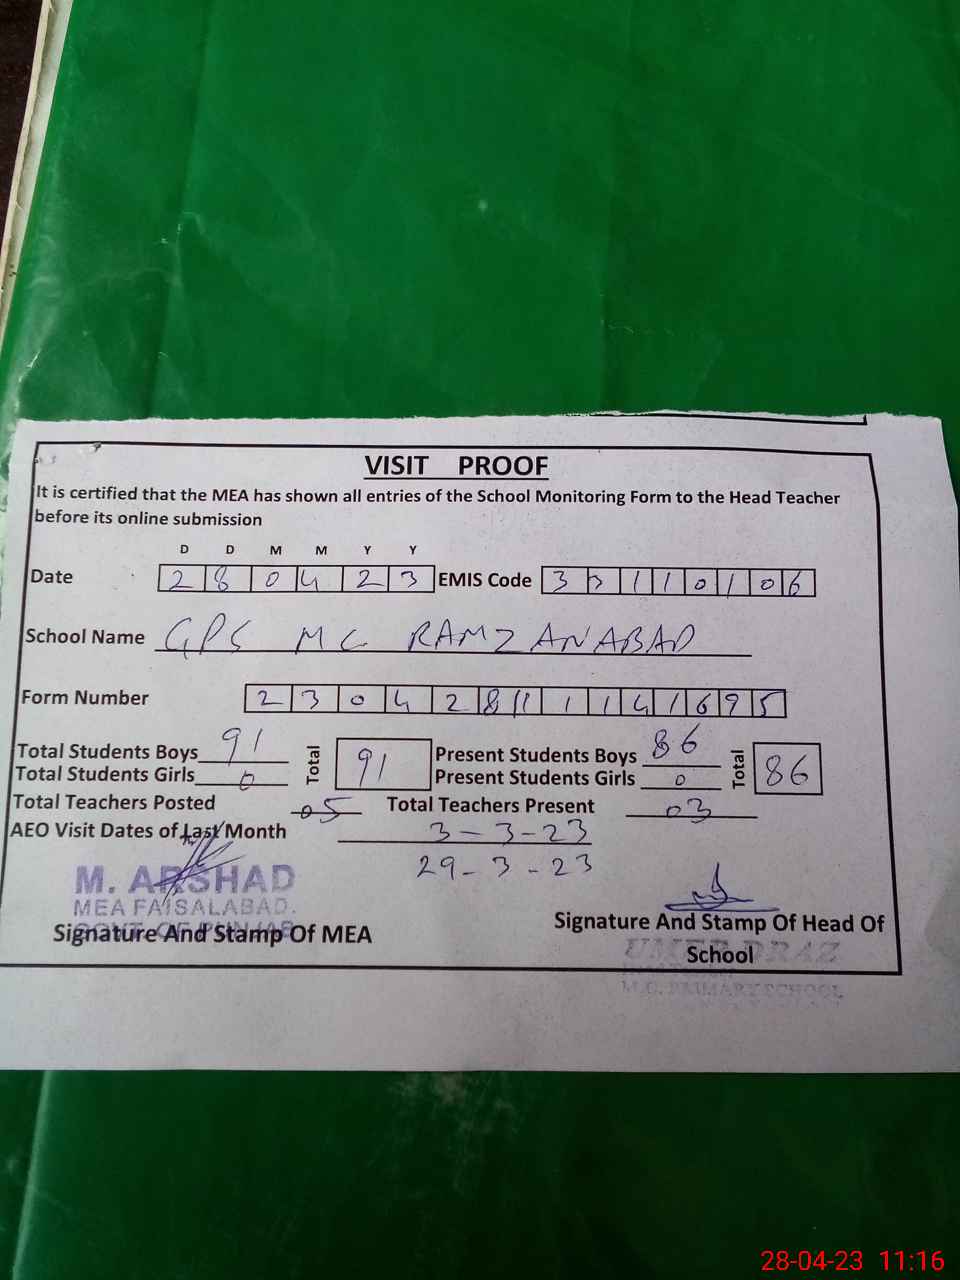 VISIT PROOF
It is certified that the MEA has shown all entries of the School Monitoring Form to the Head Teacher
before its online submission
D D M M Y Y
Date 28 04 23 EMIS Code 33110106
School Name GPS MC RAMZANABAD
Form Number 23042811141695
Total Students Boys 91 Total 91 Present Students Boys 86 Total 86
Total Students Girls 0 Present Students Girls 0
Total Teachers Posted 05 Total Teachers Present 03
AEO Visit Dates of Last Month 3-3-23
29-3-23
M. ARSHAD
MEA FAISALABAD.
GOVT. OF PUNJAB
Signature And Stamp Of MEA
Signature And Stamp Of Head Of
School
UMER DRAZ
M.C. PRIMARY SCHOOL
28-04-23 11:16